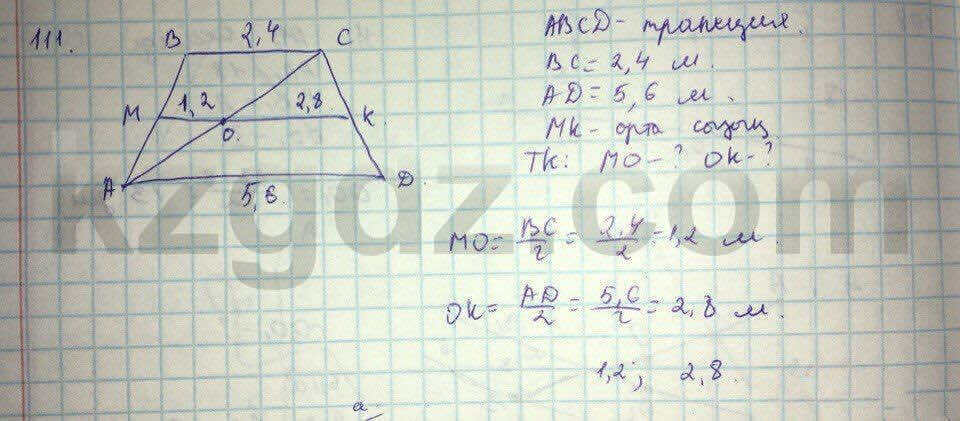 111.
B 2,4 C
M 1,2 2,8 K.
O.
A D.
5,6.
ABCD - трапеция.
BC = 2,4 м.
AD = 5,6 м.
MK - орта сызық
TK: MO - ? OK - ?
MO = BC/2 = 2,4/2 = 1,2 м.
OK = AD/2 = 5,6/2 = 2,8 м.
1,2; 2,8.
a =
kzgdz.com